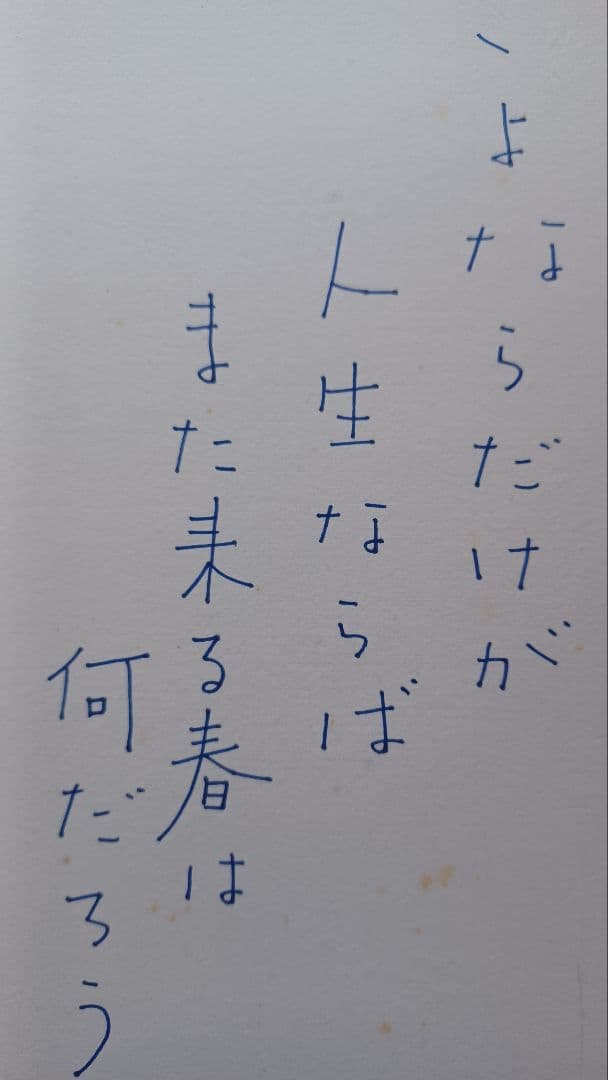 よならだけが
人生ならば
また来る春は
何だろう